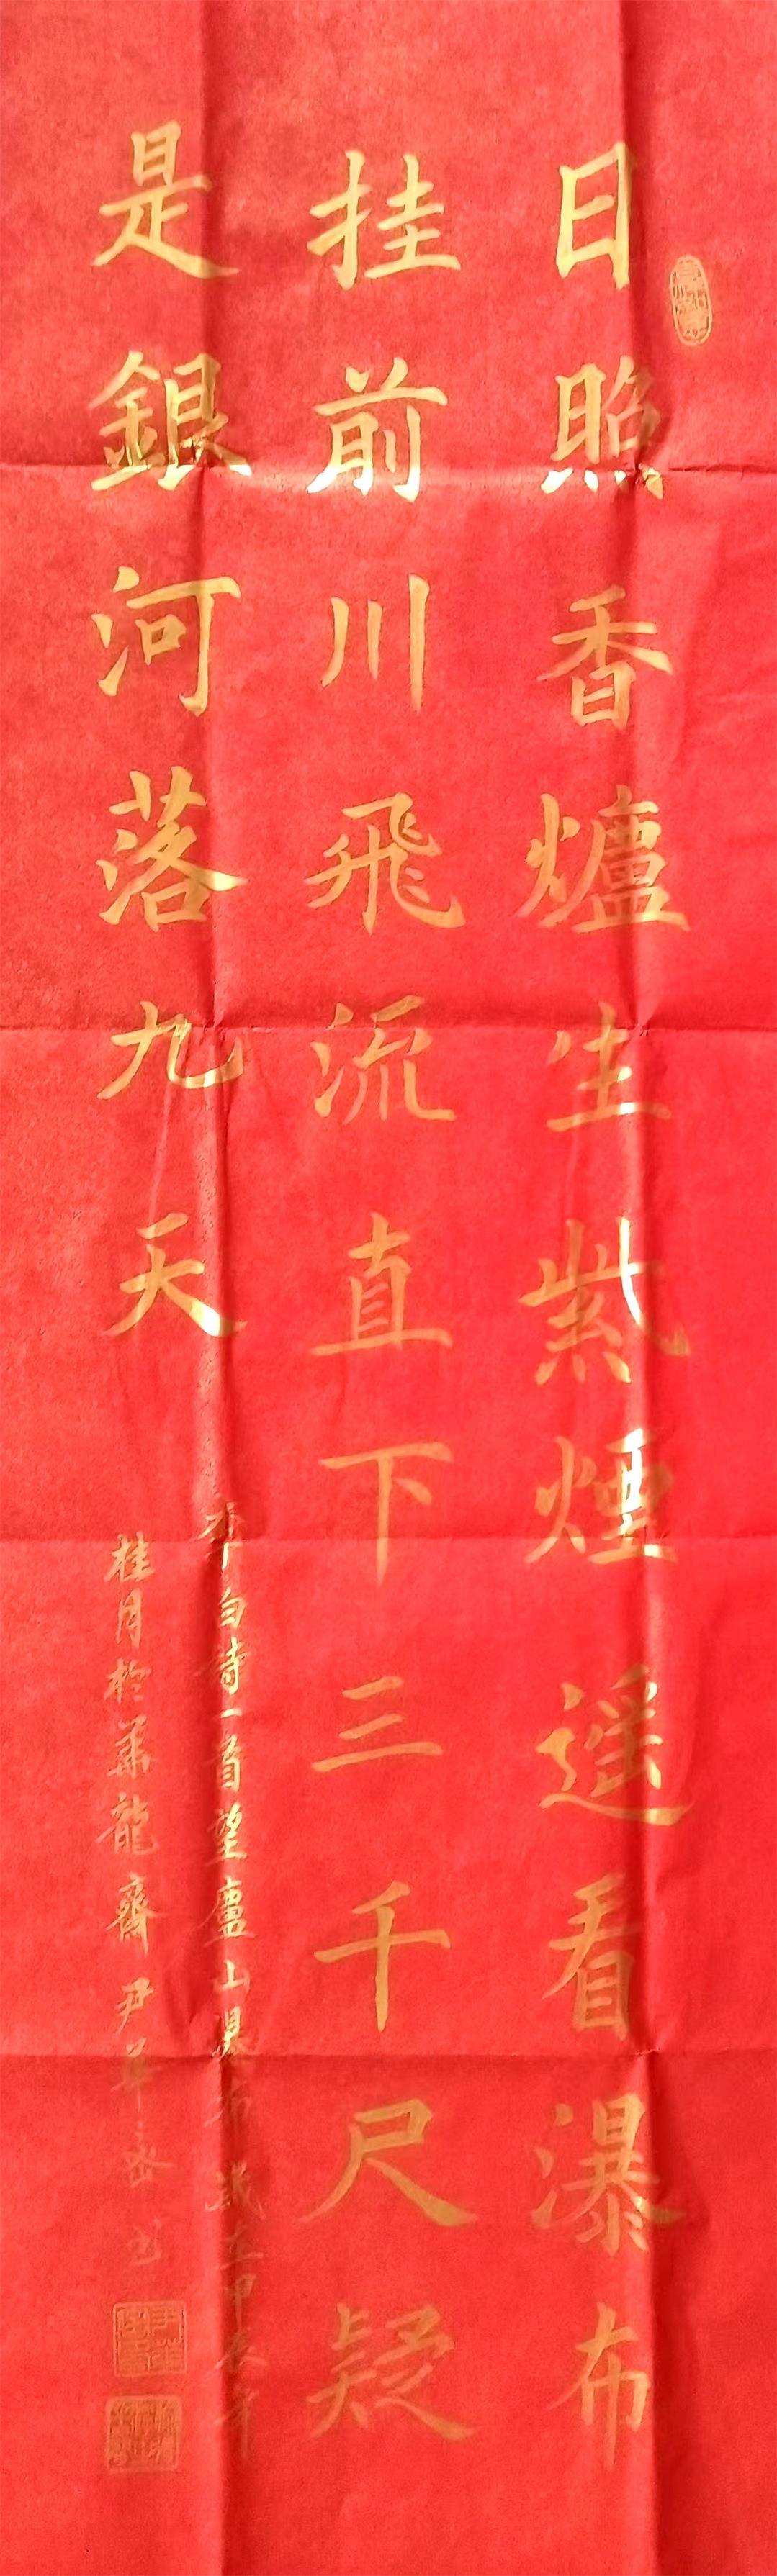 日照香爐生紫煙遥看瀑布
挂前川飛流直下三千尺疑
是銀河落九天
李白詩一首望廬山瀑布 歲在甲辰年
桂月於華龍齋尹華岳书